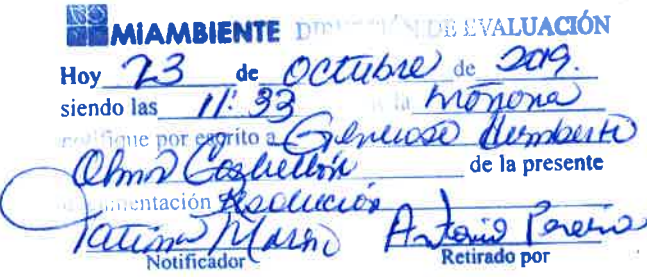 MiAMBIENTE DIRECCIÓN DE EVALUACIÓN
Hoy 23 de octubre de 2019.
siendo las 11:33 de la mañana
notifique por escrito a Generoso Humberto
Olmos de la presente
documentación Resolución
Antonio
Notificador Retirado por